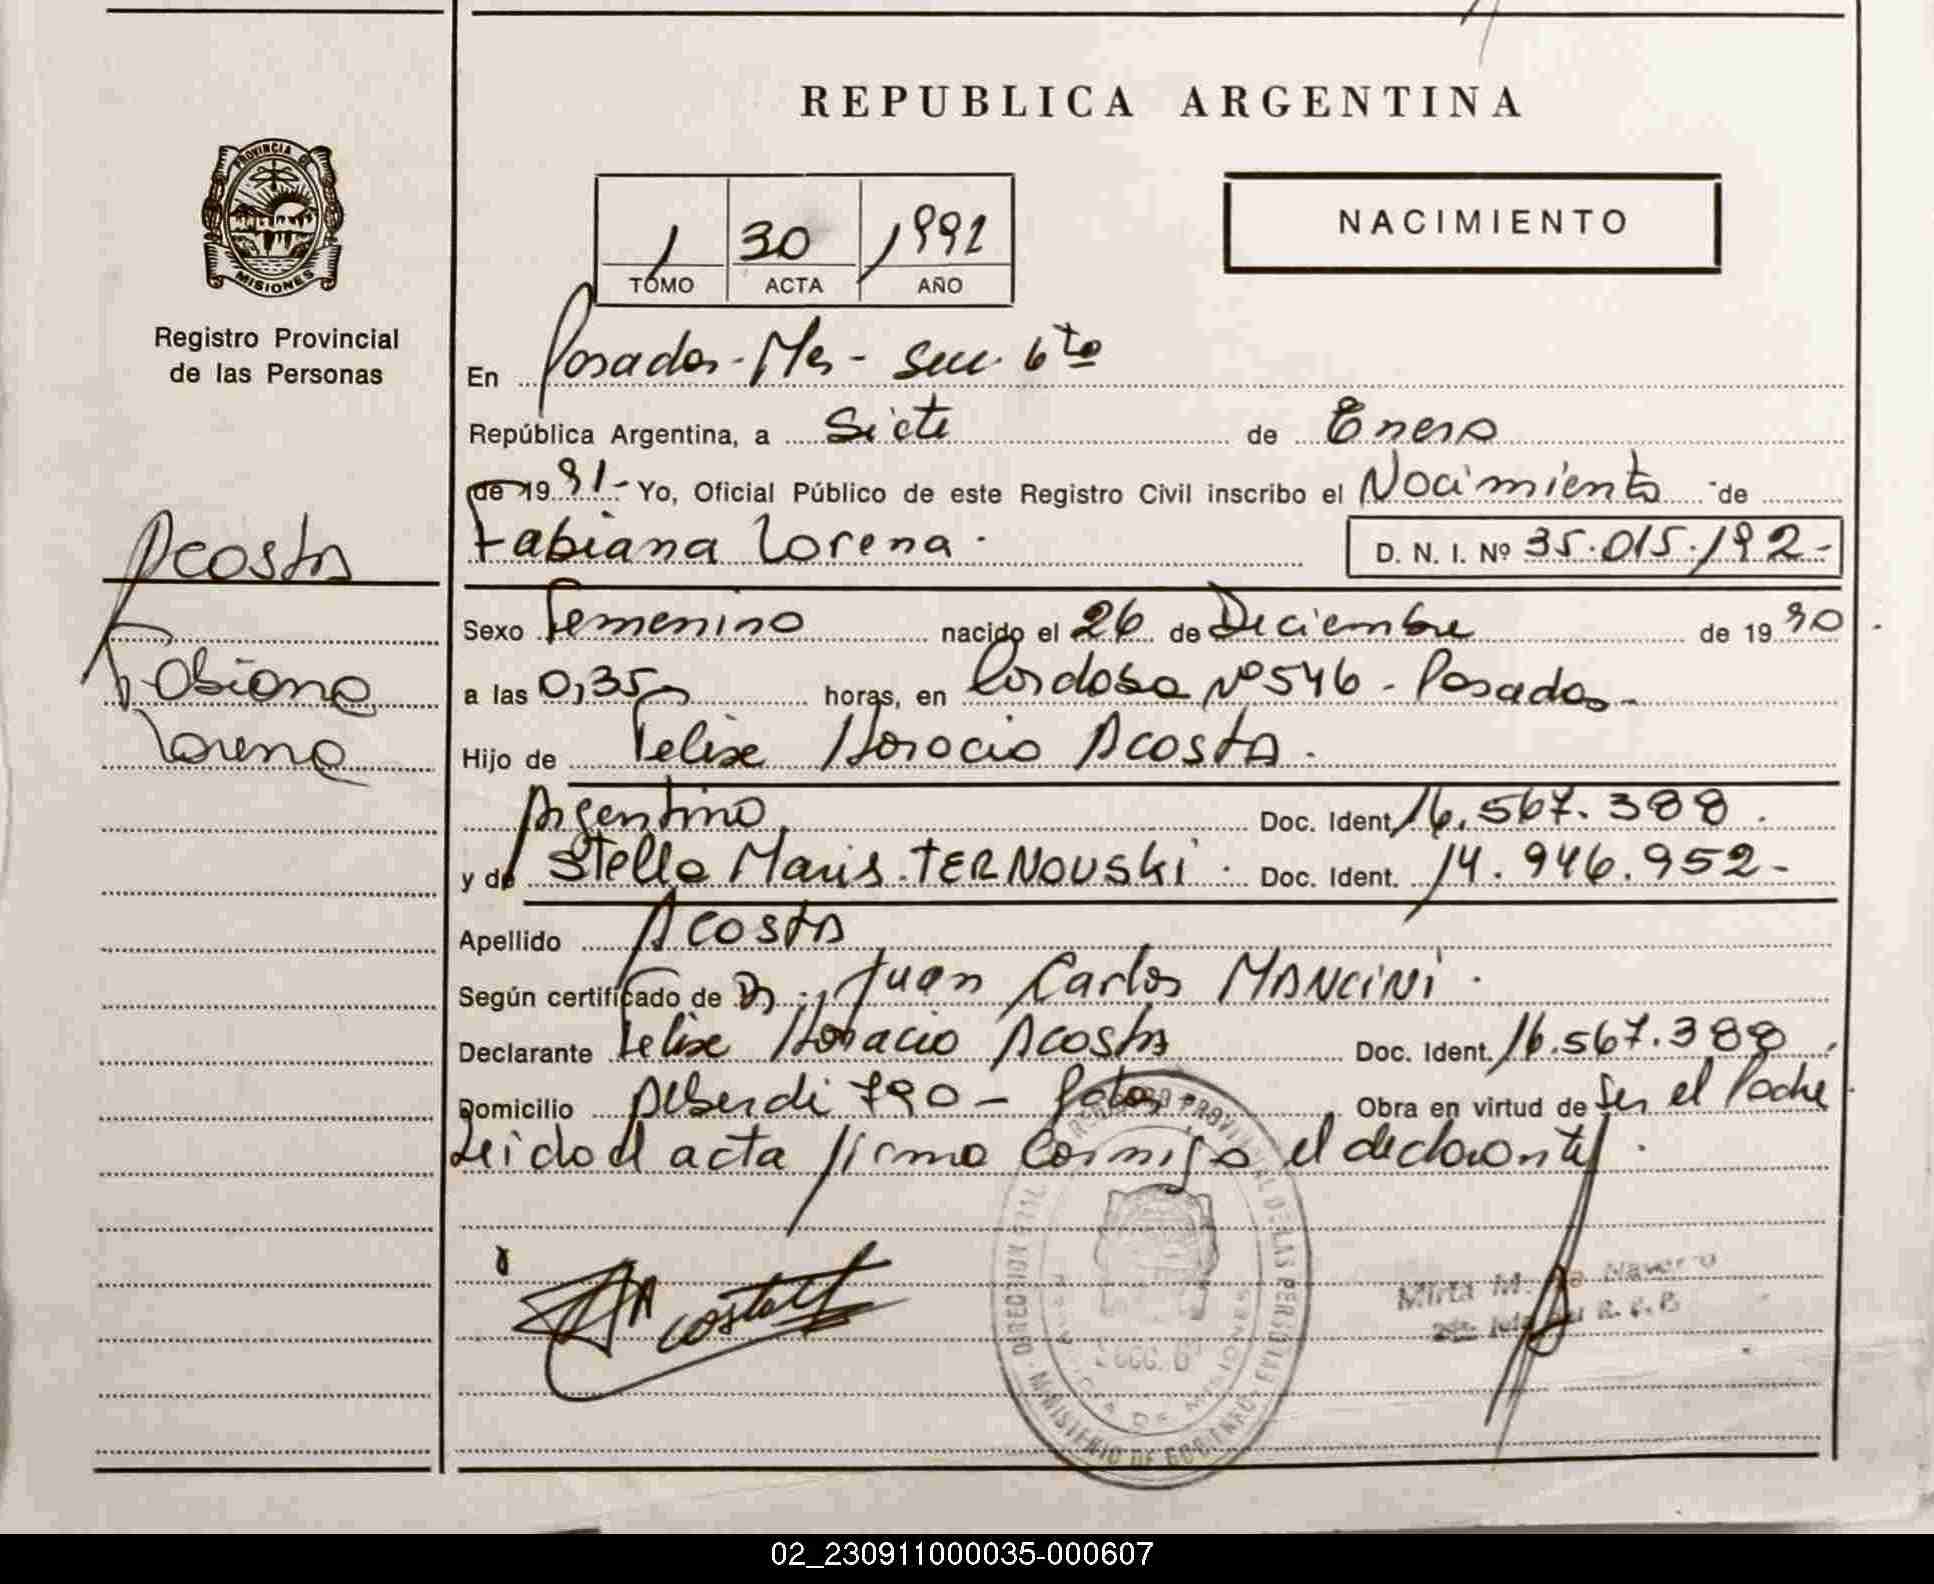 REPUBLICA ARGENTINA
PROVINCIA DE
MISIONES
Registro Provincial
de las Personas
NACIMIENTO
1 30 1991
TOMO ACTA AÑO
En Posadas - Mns - Secc. 6ta
República Argentina, a Siete de Enero
de 1991- Yo, Oficial Público de este Registro Civil inscribo el Nacimiento de
Fabiana Lorena. D. N. I. Nº 35.015.192-
Acosta
Fabiana
Lorena
Sexo Femenino nacido el 26 de Diciembre de 1990
a las 0,35 horas, en Cordoba Nº 546 - Posadas -
Hijo de Felix Horacio Acosta.
Argentino Doc. Ident. 16.567.388.
y de Stella Maris TERNOUSKI. Doc. Ident. 14.946.952-
Apellido Acosta
Según certificado de Dr. Juan Carlos MANCINI.
Declarante Felix Horacio Acosta Doc. Ident. 16.567.388.
Domicilio Alberdi 790 - Obra en virtud de Ser el Padre
Leido el acta firma conmigo el declarante.
Acosta
DIRECCION GRAL. REGISTRO PROVINCIAL DE LAS PERSONAS
MINISTERIO DE GOBIERNO
DE MISIONES
Mirta M. de Navarro
R. C. P.
02_230911000035-000607